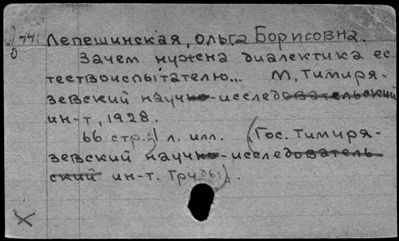 Л 44
Б
Лепешинская, Ольга Борисовна.
Зачем нужна диалектика ес-
тествоиспытателю... М. Тимиря-
зевский научно-исследовательский
ин-т, 1928.
66 стр., 1 л. илл. (Гос. Тимиря-
зевский научно-исследователь-
ский ин-т. Труды).